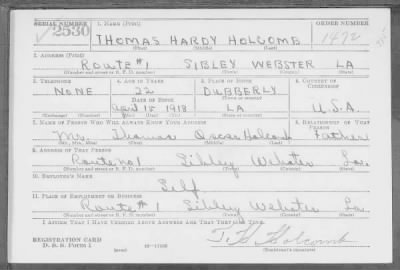 SERIAL NUMBER 1. NAME (Print) ORDER NUMBER
2530 THOMAS HARDY HOLCOMB 1472
(First) (Middle) (Last)
2. ADDRESS (Print)
Route #1 SIBLEY WEBSTER LA
(Number and street or R. F. D. number) (Town) (County) (State)
3. TELEPHONE 4. AGE IN YEARS 5. PLACE OF BIRTH 6. COUNTRY OF CITIZENSHIP
NONE 22 DUBBERLY
DATE OF BIRTH
April 15 1918 LA U.S.A.
7. NAME OF PERSON WHO WILL ALWAYS KNOW YOUR ADDRESS 8. RELATIONSHIP OF THAT PERSON
Mr. Thomas Oscar Holcomb Father
(Mr., Mrs., Miss) (First) (Middle) (Last)
9. ADDRESS OF THAT PERSON
Route no 1 Sibley Webster La.
(Number and street or R. F. D. number) (Town) (County) (State)
10. EMPLOYER'S NAME
Self
11. PLACE OF EMPLOYMENT OR BUSINESS
Route #1 Sibley Webster La
(Number and street or R. F. D. number) (Town) (County) (State)
I AFFIRM THAT I HAVE VERIFIED ABOVE ANSWERS AND THAT THEY ARE TRUE.
REGISTRATION CARD T. H. Holcomb
D. S. S. Form 1 (Registrant's signature)